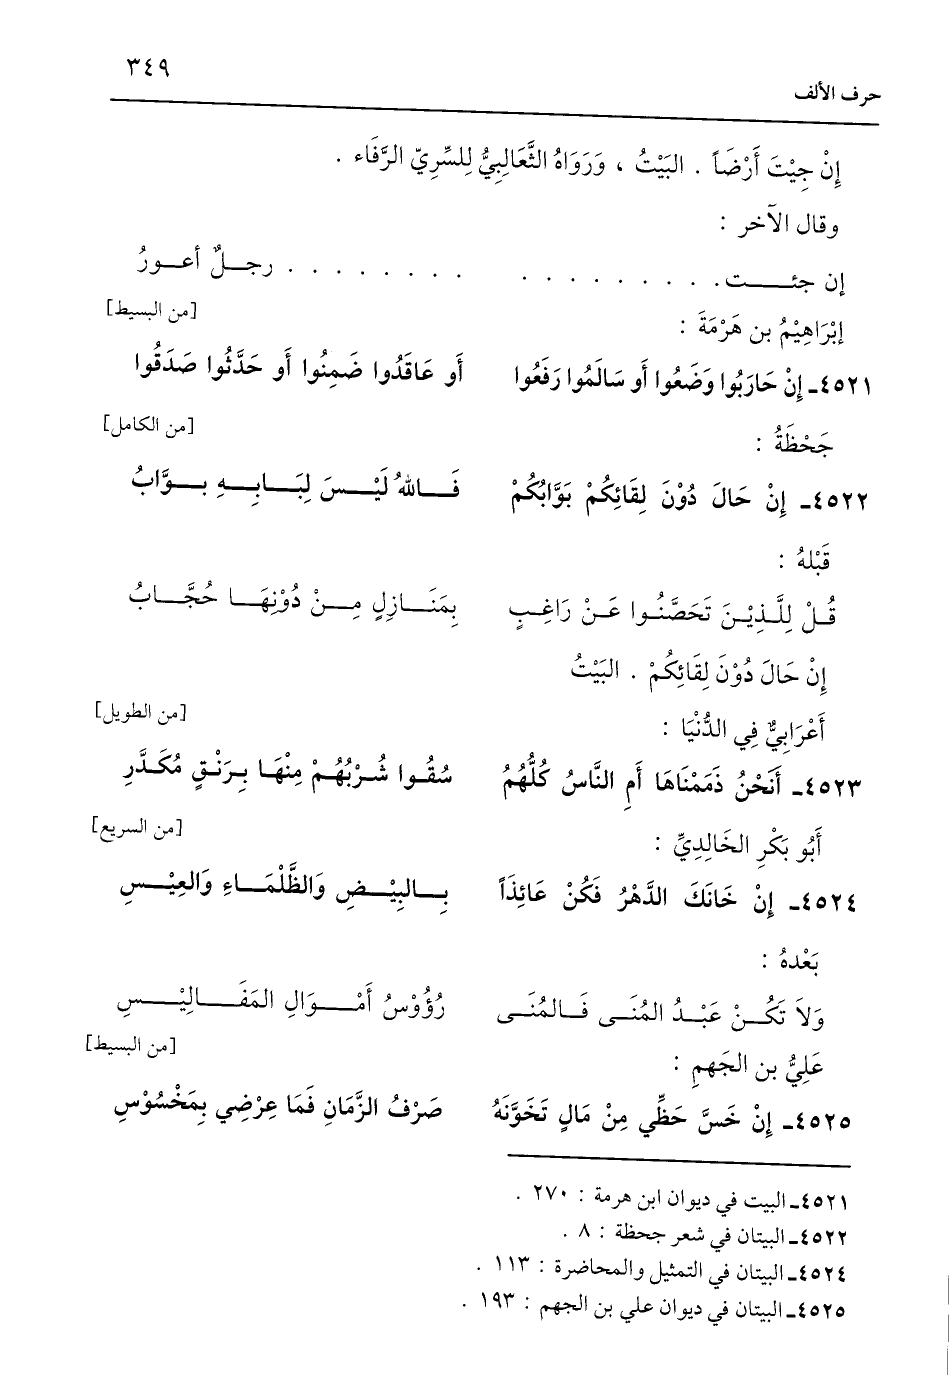 حرف الألف ٣٤٩
إِنْ جِيْتَ أَرْضَاً . البَيْتُ ، وَرَوَاهُ الثَّعَالِبِيُّ لِلسِّرِيّ الرَّفَاء .
وقال الآخر :
إن جئــــت. . . . . . . . . . . . . . . . . . . رجــلٌ أعــورُ
إبْرَاهِيْمُ بن هَرْمَةَ : [من البسيط]
٤٥٢١ـ إِنْ حَارَبُوا وَضَعُوا أَو سَالَمُوا رَفَعُوا أَو عَاقَدُوا ضَمِنُوا أَو حَدَّثُوا صَدَقُوا
جَحْظَةُ : [من الكامل]
٤٥٢٢ـ إِنْ حَالَ دُوْنَ لِقَائِكُمْ بَوَّابُكُمْ فَــاللهُ لَيْــسَ لِبَــابِــهِ بــوَّابُ
قَبْلهُ :
قُــلْ لِلَّــذِيْــنَ تَحَصَّنُــوا عَــنْ رَاغِــبٍ بِمَنَــازِلٍ مِــنْ دُوْنِهَــا حُجَّــابُ
إِنْ حَالَ دُوْنَ لِقَائِكُمْ . البَيْتُ
أَعْرَابِيٌّ فِي الدُّنْيَا : [من الطويل]
٤٥٢٣ـ أَنَحْنُ ذَمَمْنَاهَا أَمِ النَّاسُ كُلُّهُمُ سُقُــوا شُــرْبُهُــمْ مِنْهَــا بِــرَنْــقٍ مُكَــدَّرِ
أَبُو بَكْرِ الخَالِدِيِّ : [من السريع]
٤٥٢٤ـ إِنْ خَانَكَ الدَّهْرُ فَكُنْ عَائِذَاً بِــالبِيْــضِ وَالظَّلْمَــاءِ وَالعِيْــسِ
بَعْدهُ :
وَلاَ تَكُــنْ عَبْــدُ المُنَــى فَــالمُنَــى رُؤُوْسُ أَمْــوَالِ المَفَــالِيْــسِ
عَلِيُّ بن الجَهمِ : [من البسيط]
٤٥٢٥ـ إِنْ خَسَّ حَظِّي مِنْ مَالٍ تَخَوَّنَهُ صَرْفُ الزَّمَانِ فَمَا عِرْضِي بِمَخْسُوْسِ
٤٥٢١ـ البيت في ديوان ابن هرمة : ٢٧٠ .
٤٥٢٢ـ البيتان في شعر جحظة : ٨ .
٤٥٢٤ـ البيتان في التمثيل والمحاضرة : ١١٣ .
٤٥٢٥ـ البيتان في ديوان علي بن الجهم : ١٩٣ .